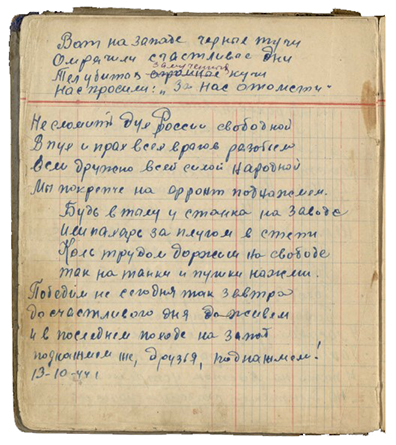 Вот на западе черные тучи
Омрачили счастливое дни
замученных
Тел убитых огромное кучи
Нас просили: "За нас отомсти"
Не сломить дух России свободной
В пух и прах всех врагов разобьем
Всем дружно всей силой народной
Мы покрепче на фронт поднажмем.
Будь в тылу у станка на заводе
Или пахарь за плугом в степи
Коль трудом дорожим на свободе
так на танки и пушки нажми.
Победим не сегодня так завтра
до счастливого дня доживем
и в последнем походе на запад
поднажмем же, друзья, поднажмем!
13-10-44 г